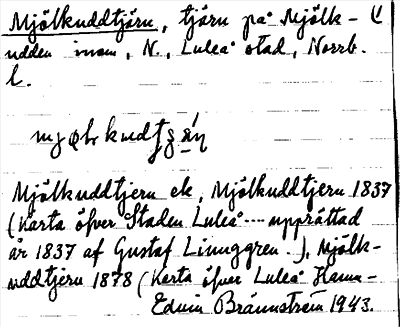 Mjölkuddtjärn, tjärn på Mjölk-
udden inom N. Luleå stad, Norrb.
l.
Mjölkuddtjern ek, Mjölkuddtjern 1837
(Karta öfver Staden Luleå --- upprättad
år 1837 af Gustaf Linuggren.), Mjölk-
uddtjern 1878 (Karta öfver Luleå Hamn-
Edvin Brännström 1943.